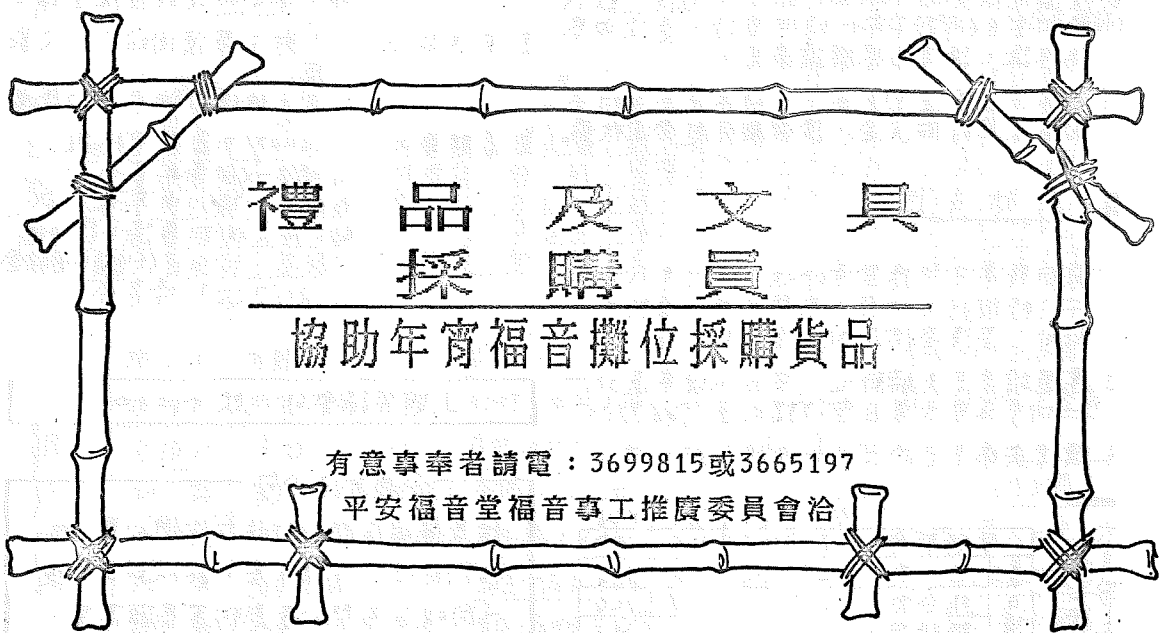 禮品及文具
採購員
協助年宵福音攤位採購貨品
有意事奉者請電：3699815或3665197
平安福音堂福音事工推廣委員會洽